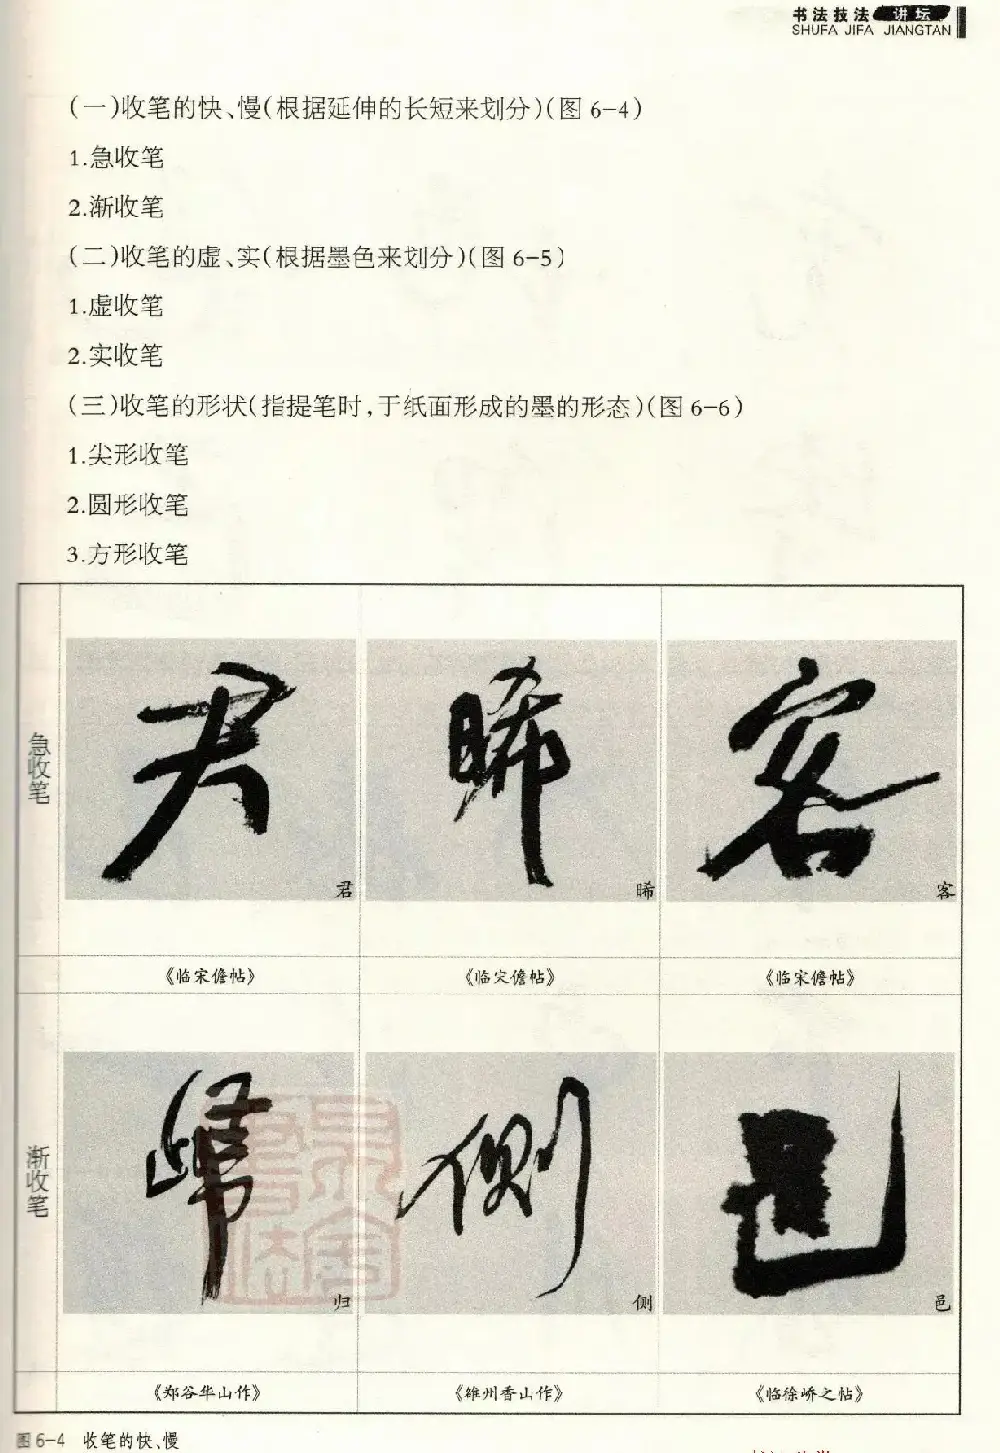 书法技法 讲坛
SHUFA JIFA JIANGTAN
(一)收笔的快、慢(根据延伸的长短来划分)(图 6-4)
1.急收笔
2.渐收笔
(二)收笔的虚、实(根据墨色来划分)(图 6-5)
1.虚收笔
2.实收笔
(三)收笔的形状(指提笔时,于纸面形成的墨的形态)(图 6-6)
1.尖形收笔
2.圆形收笔
3.方形收笔
急收笔
君 晞 客
君 晞 客
《临宋儋帖》 《临宋儋帖》 《临宋儋帖》
渐收笔
歸 侧 邑
归 侧 邑
《郑谷华山作》 《雒州香山作》 《临徐峤之帖》
图 6-4 收笔的快、慢